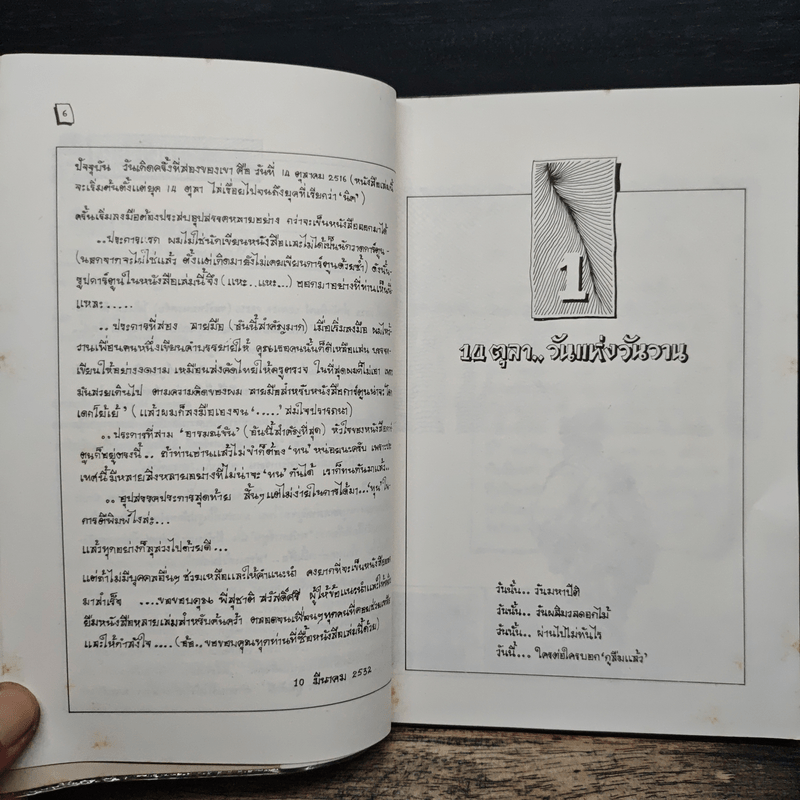 6
ปัจจุบัน วันเกิดครั้งที่สองของเขา คือ วันที่ 14 ตุลาคม 2516 (หนังสือเล่มนี้
จะเริ่มต้นตั้งแต่ยุค 14 ตุลา ไล่เรื่อยไปจนถึงยุคที่เรียกว่า 'นิค')
ครั้นเริ่มลงมือต้องประสบอุปสรรคหลายอย่าง กว่าจะเป็นหนังสือออกมาได้
..ประการแรก ผมไม่ใช่นักเขียนหนังสือและไม่ได้เป็นนักวาดการ์ตูน-
(นอกจากจะไม่ใช่แล้ว ตั้งแต่เกิดมายังไม่เคยเขียนการ์ตูนด้วยซ้ำ) ดังนั้น
รูปการ์ตูนในหนังสือเล่มนี้จึง (แหะ..แหะ...) ออกมาอย่างที่ท่านเห็น
แหละ.....
..ประการที่สอง ลายมือ (อันนี้สำคัญมาก) เมื่อเริ่มลงมือ ผมไหว้
วานเพื่อนคนหนึ่งเขียนคำบรรยายให้ คุณเธอคนนั้นก็ดีเหลือแสน บรรจง
เขียนให้อย่างงดงาม เหมือนส่งคัดไทยให้ครูตรวจ ในที่สุดผมก็ไม่เอา เพราะ
มันสวยเกินไป ตามความคิดของผม ลายมือสำหรับหนังสือการ์ตูนน่าจะ
เตกโย้เย้' (แล้วผมก็ลงมือเองจน '.....' สมใจปรารถนา)
..ประการที่สาม 'อารมณ์ขัน' (อันนี้สำคัญที่สุด) หัวใจของหนังสือการ์
ตูนก็อยู่ตรงนี้.. ถ้าท่านอ่านแล้วไม่ขำก็ต้อง 'ทน' หน่อยนะครับ เพราะ
เทศนี้มีหลายสิ่งหลายอย่างที่ไม่น่าจะ 'ทน' กันได้ เราก็ทนกันมาแล้ว..
..อุปสรรคประการสุดท้าย สั้นๆแต่ไม่ง่ายในการได้มา...'ทุน' ใน
การตีพิมพ์ไงล่ะ...
แล้วทุกอย่างก็ลุล่วงไปด้วยดี...
แต่ถ้าไม่มีบุคคลอื่นๆ ช่วยเหลือและให้คำแนะนำ คงยากที่จะเป็นหนังสือ
มาสำเร็จ ....ขอขอบคุณ พี่สุชาติ สวัสดิ์ศรี ผู้ให้ข้อแนะนำและให้
ยืมหนังสือหลายเล่มสำหรับค้นคว้า ตลอดจนเพื่อนๆทุกคนที่คอยช่วยเหลือ
และให้กำลังใจ ....(อ้อ., ขอขอบคุณทุกท่านที่ซื้อหนังสือเล่มนี้ด้วย)
10 มีนาคม 2532
1
14 ตุลา.. วันแห่งวันวาน
วันนั้น.. วันมหาปิติ
วันนั้น.. วันผลิมวลดอกไม้
วันนั้น.. ผ่านไปไม่ทันไร
วันนี้... ใครต่อใครบอก 'กูลืมแล้ว'